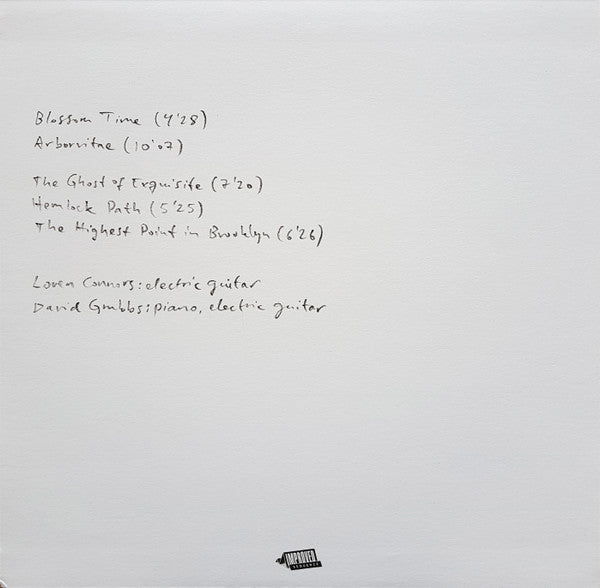 Blossom Time (4'28)
Arborvitae (10'07)
The Ghost of Exquisite (7'20)
Hemlock Path (5'25)
The Highest Point in Brooklyn (6'26)
Loren Connors: electric guitar
David Grubbs: piano, electric guitar
IMPROVED
SEQUENCE